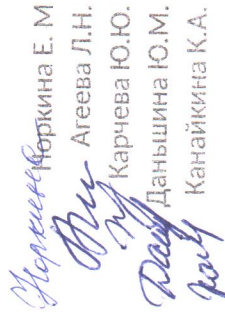 Норкина Е. М
Агеева Л.Н.
Карчева Ю.Ю.
Даньшина Ю.М.
Канайкина К.А.